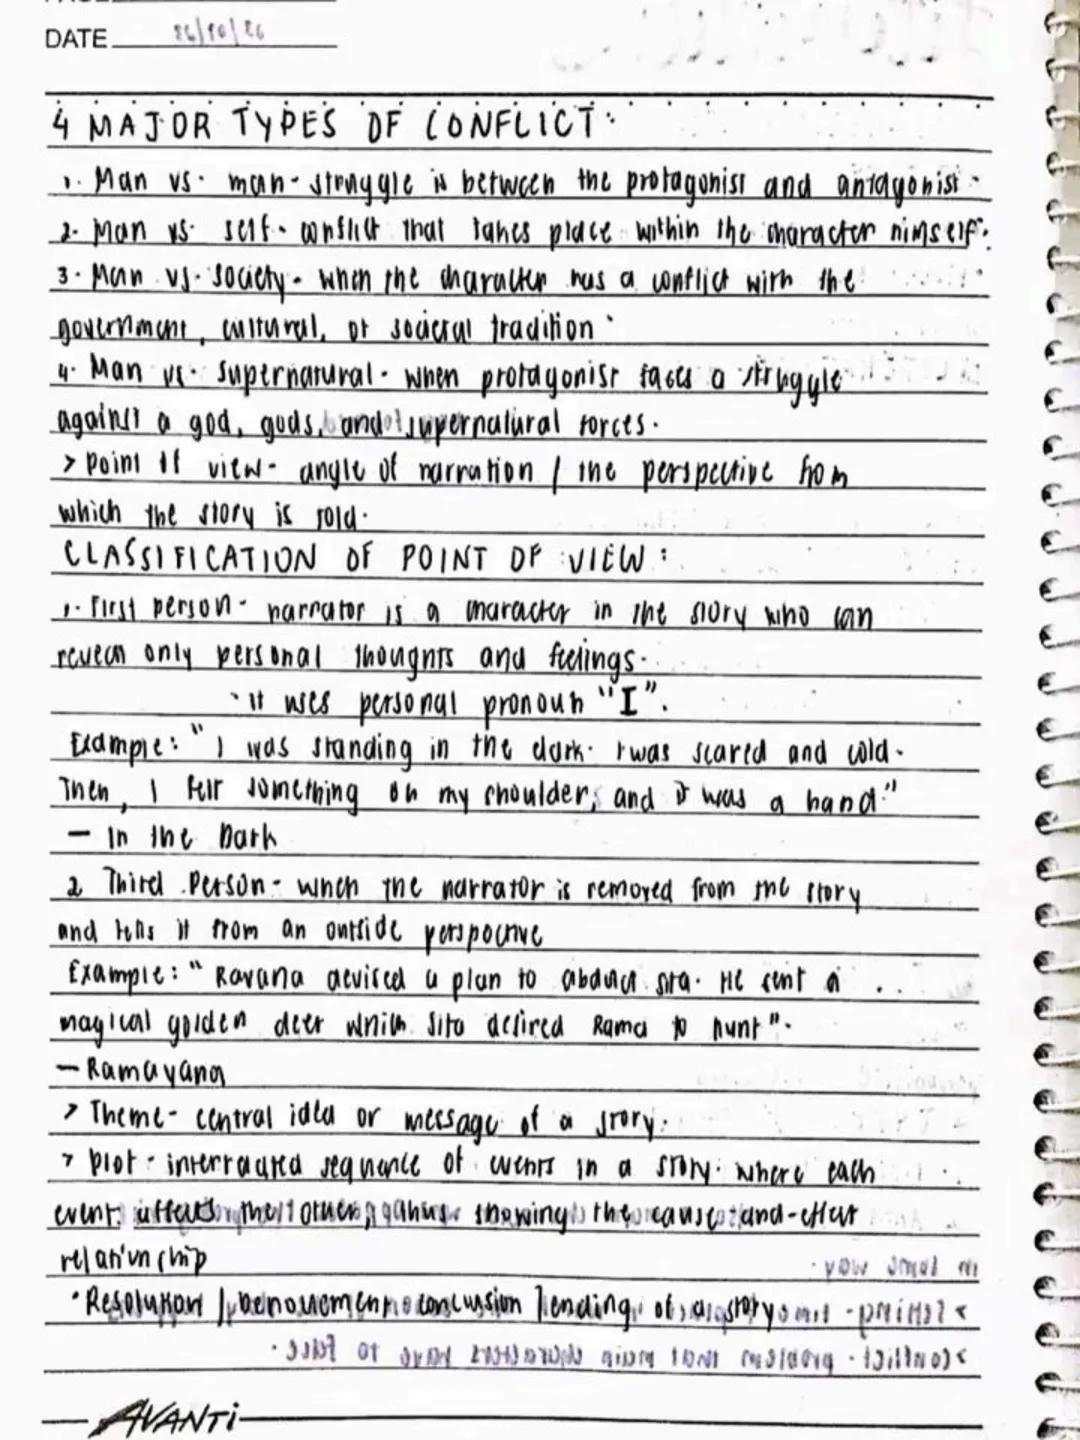 DATE
4 MAJOR TYPES OF CONFLICT:
1. Man vs. man - struggle is between the protagonist and antagonist.
2. Man vs. self - conflict that takes place within the character himself.
3. Man vs. society - when the character has a conflict with the
government, cultural, or societal tradition.
4. Man vs. supernatural - when protagonist faces a struggle
against a god, gods, and supernatural forces.
> Point of view - angle of narration / the perspective from
which the story is told.
CLASSIFICATION OF POINT OF VIEW:
1. First person - narrator is a character in the story who can
reveal only personal thoughts and feelings.
· It uses personal pronoun "I".
Example: "I was standing in the dark. I was scared and cold.
Then, I felt something on my shoulder, and it was a hand."
— In the Dark
2 Third Person - when the narrator is removed from the story
and tells it from an outside perspective
Example: "Ravana devised a plan to abduct Sita. He sent a
magical golden deer which Sita desired Rama to hunt".
— Ramayana
> Theme - central idea or message of a story.
> Plot - interrelated sequence of events in a story where each
event affects the other, thus showing the cause-and-effect
relationship
· Resolution / Denouement conclusion / ending of a story
AVANTi